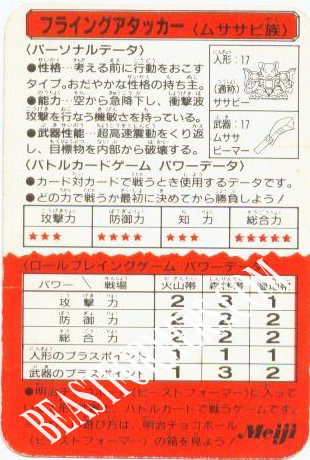 フライングアタッカー〈ムササビ族〉
〈パーソナルデータ〉
●性格…考える前に行動をおこす
タイプ。おだやかな性格の持ち主。
●能力…空から急降下し、衝撃波
攻撃を行なう機敏さを持っている。
●武器性能…超高速震動をくり返
し、目標物を内部から破壊する。
人形：17
(通称)
ムササビー
武器：17
ムササ
ビーマー
〈バトルカードゲーム パワーデータ〉
●カード対カードで戦うとき使用するデータです。
●どの力で戦うか最初に決めてから勝負しよう！
攻撃力 防御力 知力 総合力
★★★ ★★★★ ★★★★ ★★★★★
〈ロールプレイングゲーム パワーデー
パワー／戦場 火山帯 森林帯
攻撃力 2 3 1
防御力 2 2 2
総合力 2 2 2
人形のプラスポイント 1 1 1
武器のプラスポイント 1 3 2
●明治チョコ
ビーストフォーマー〉に入って
バトルカードで戦うゲームです。
遊び方は、明治チョコボール
〈ビーストフォーマー〉の箱を見よう！
Meiji